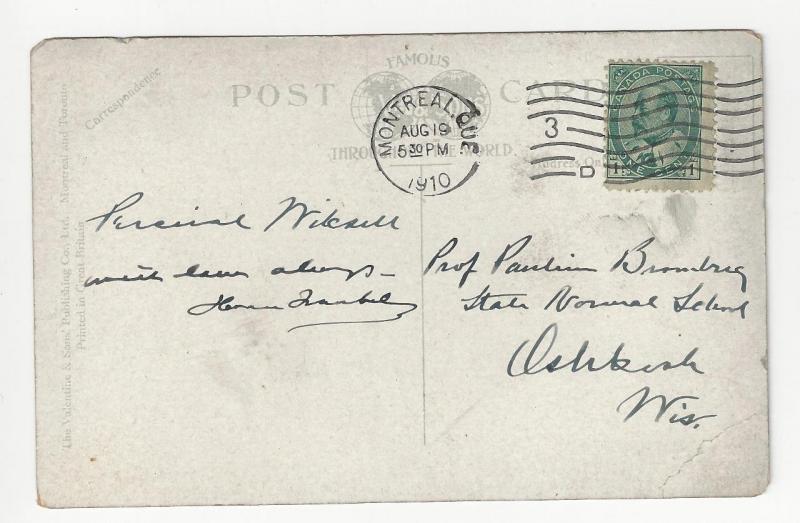 Correspondence
FAMOUS
POST CARD
THROUGHOUT THE WORLD
Address On
The Valentine & Sons' Publishing Co., Ltd. Montreal and Toronto
Printed in Great Britain
MONTREAL, QUE.
AUG 19
5 30 PM
1910
3
D
CANADA POSTAGE
1 ONE CENT 1
Percival Wiksell
with love always –
Horace Traubel
Prof Pauline
State Normal School
Oshkosh
Wis.